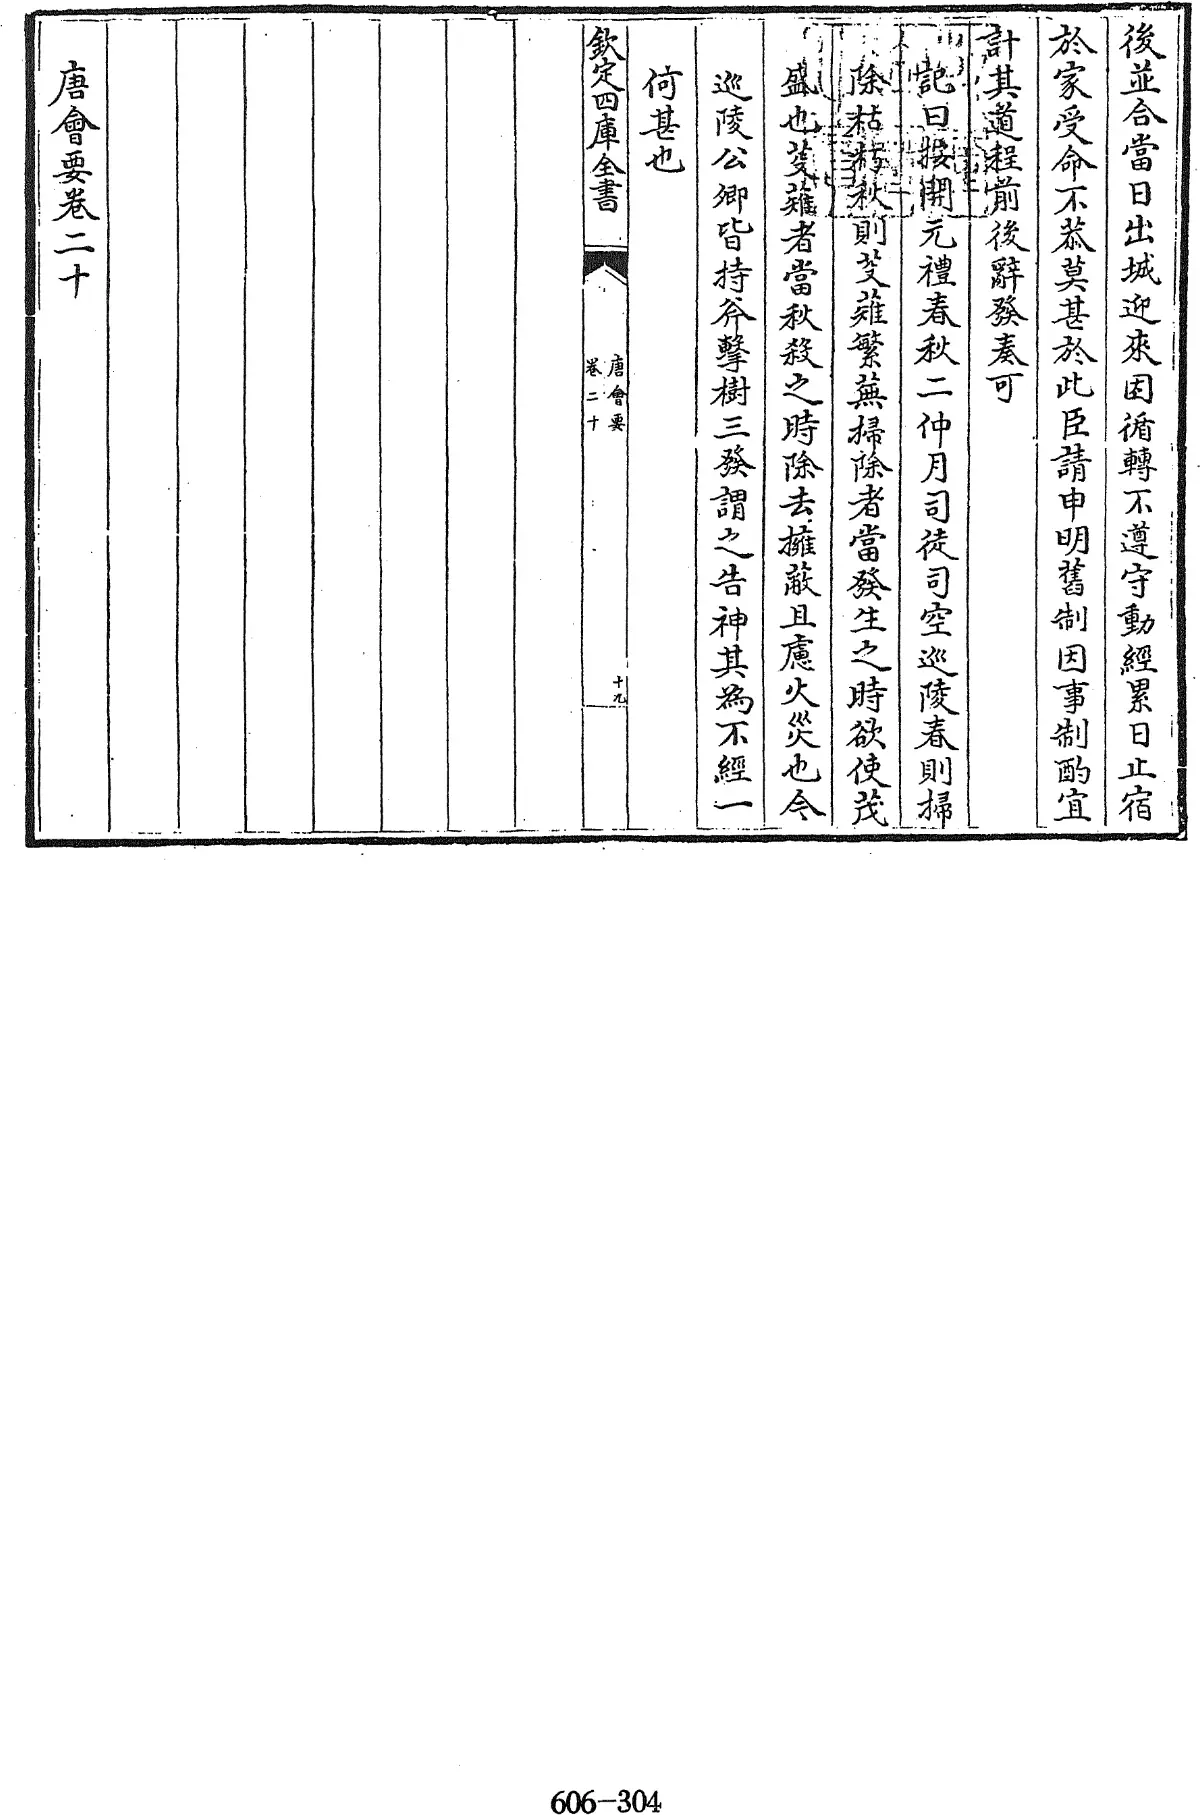 後並合當日出城迎來因循轉不遵守動經累日止宿
於家受命不恭莫甚於此臣請申明舊制因事制酌宜
計其道程前後辭發奏可
記曰按開元禮春秋二仲月司徒司空巡陵春則掃
除枯朽秋則芟薙繁蕪掃除者當發生之時欲使茂
盛也芟薙者當秋殺之時除去擁蔽且慮火災也今
巡陵公卿皆持斧擊樹三發謂之告神其為不經一
何甚也
欽定四庫全書
唐會要
卷二十
十九
唐會要卷二十
606-304